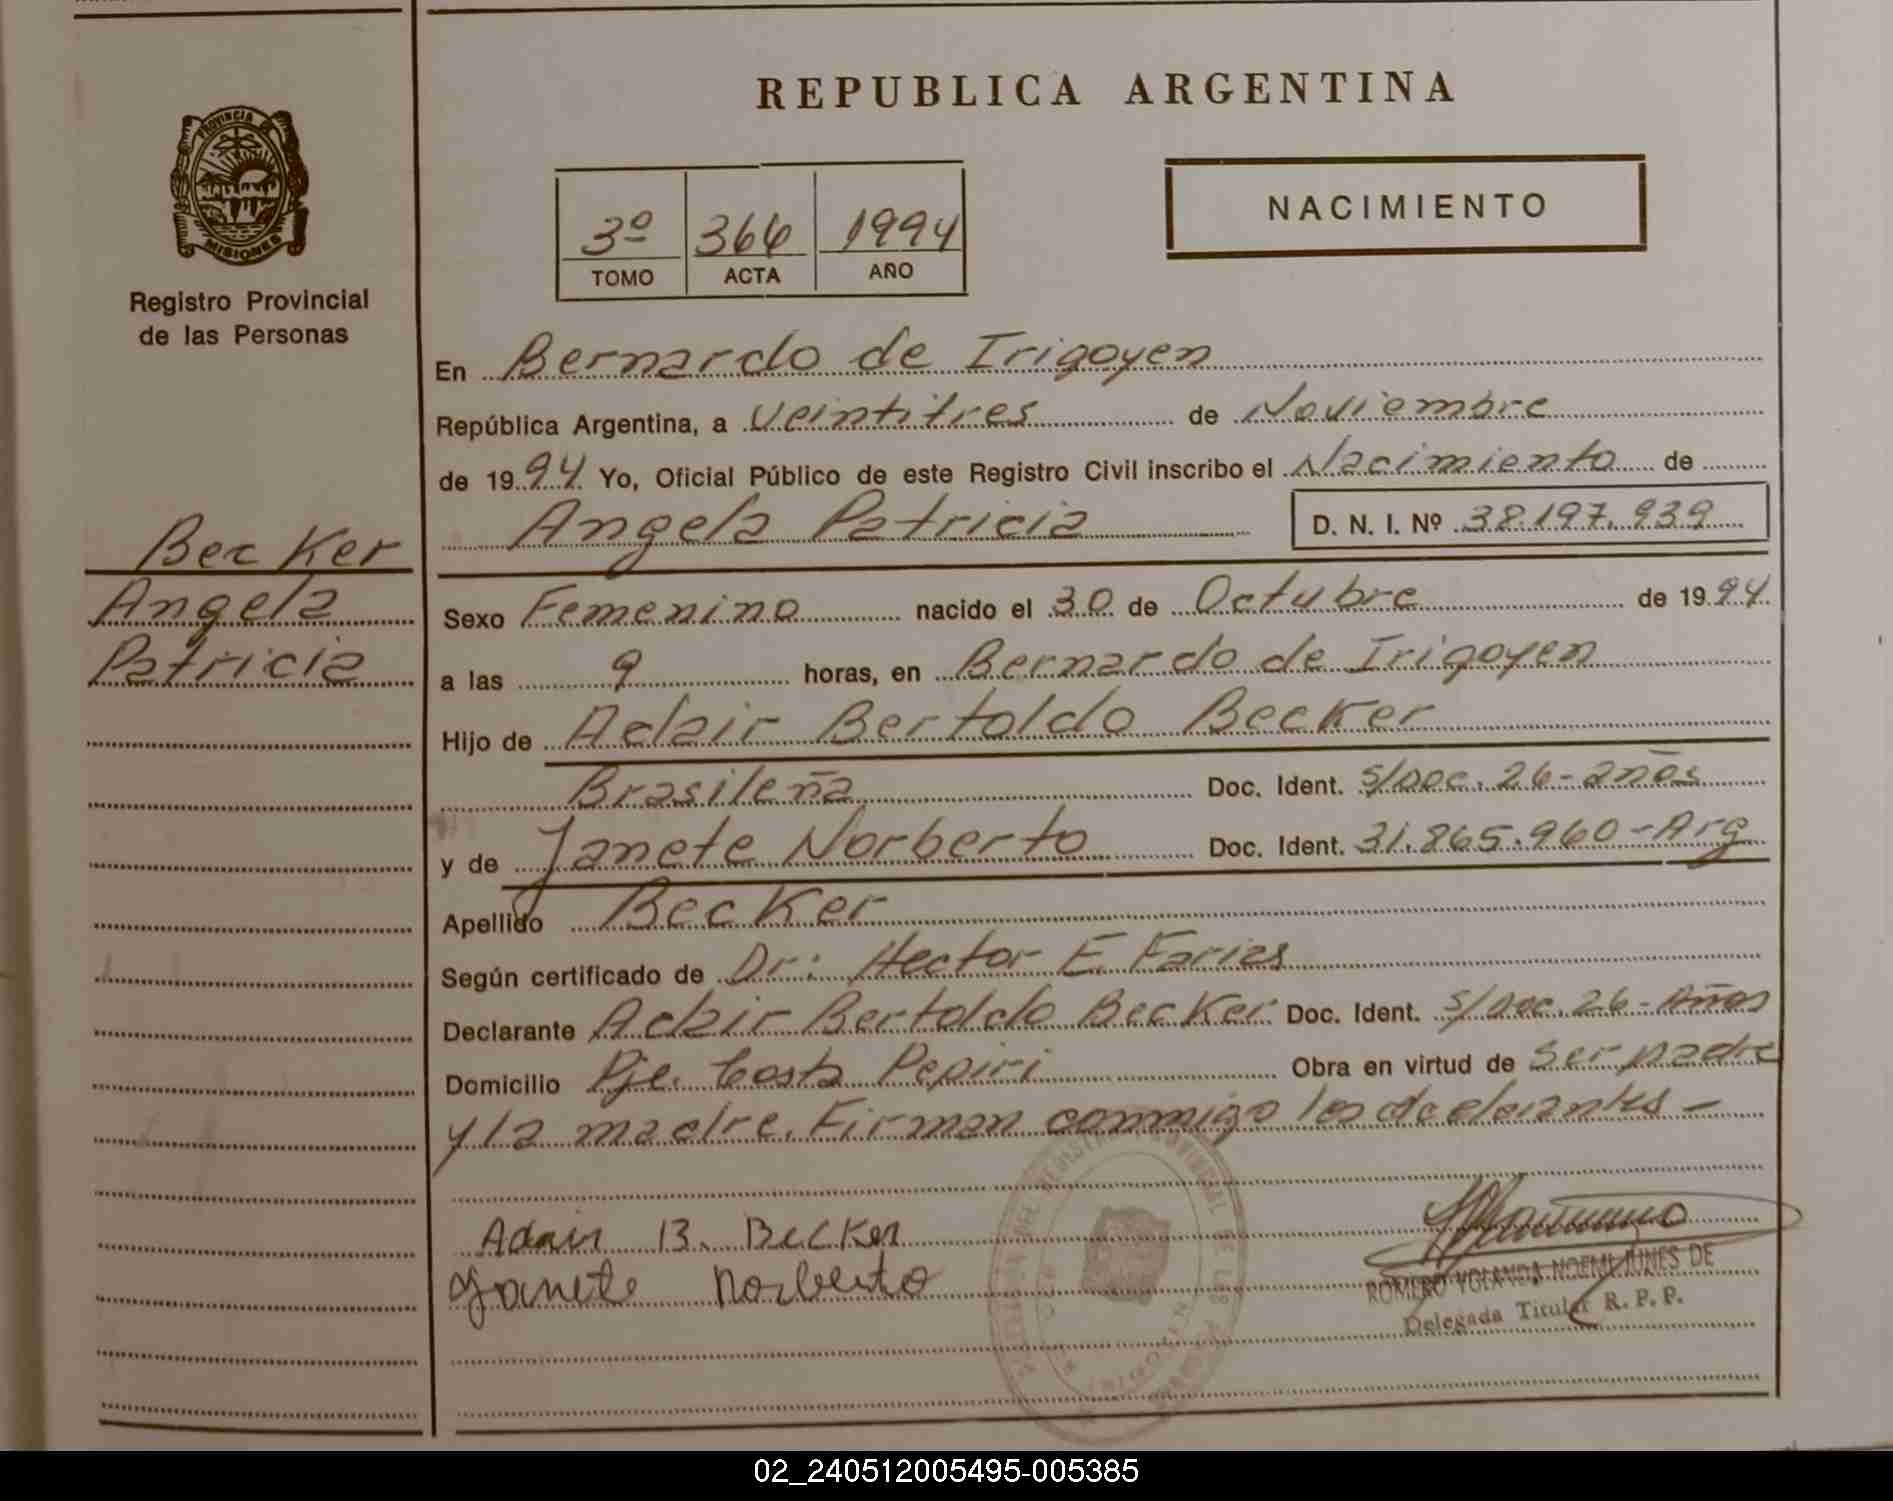 REPUBLICA ARGENTINA
PROVINCIA DE
MISIONES
Registro Provincial
de las Personas
NACIMIENTO
3º 366 1994
TOMO ACTA AÑO
En Bernardo de Irigoyen
República Argentina, a veintitres de Noviembre
de 1994 Yo, Oficial Público de este Registro Civil inscribo el Nacimiento de
Angela Patricia D. N. I. Nº 38.197.939
Becker
Angela
Patricia
Sexo Femenino nacido el 30 de Octubre de 1994
a las 9 horas, en Bernardo de Irigoyen
Hijo de Adair Bertoldo Becker
Brasileña Doc. Ident. S/Doc. 26-años
y de Janete Norberto Doc. Ident. 31.865.960-Arg
Apellido Becker
Según certificado de Dr: Hector E. Farias
Declarante Adair Bertoldo Becker Doc. Ident. S/Doc. 26-Años
Domicilio Pje. Costa Pepiri Obra en virtud de Ser padre
y la madre. Firman conmigo los declarantes -
Adair B. Becker
Janete Norberto
ROMERO YOLANDA NOEMI JUNES DE
Delegada Titular R. P. P.
02_240512005495-005385